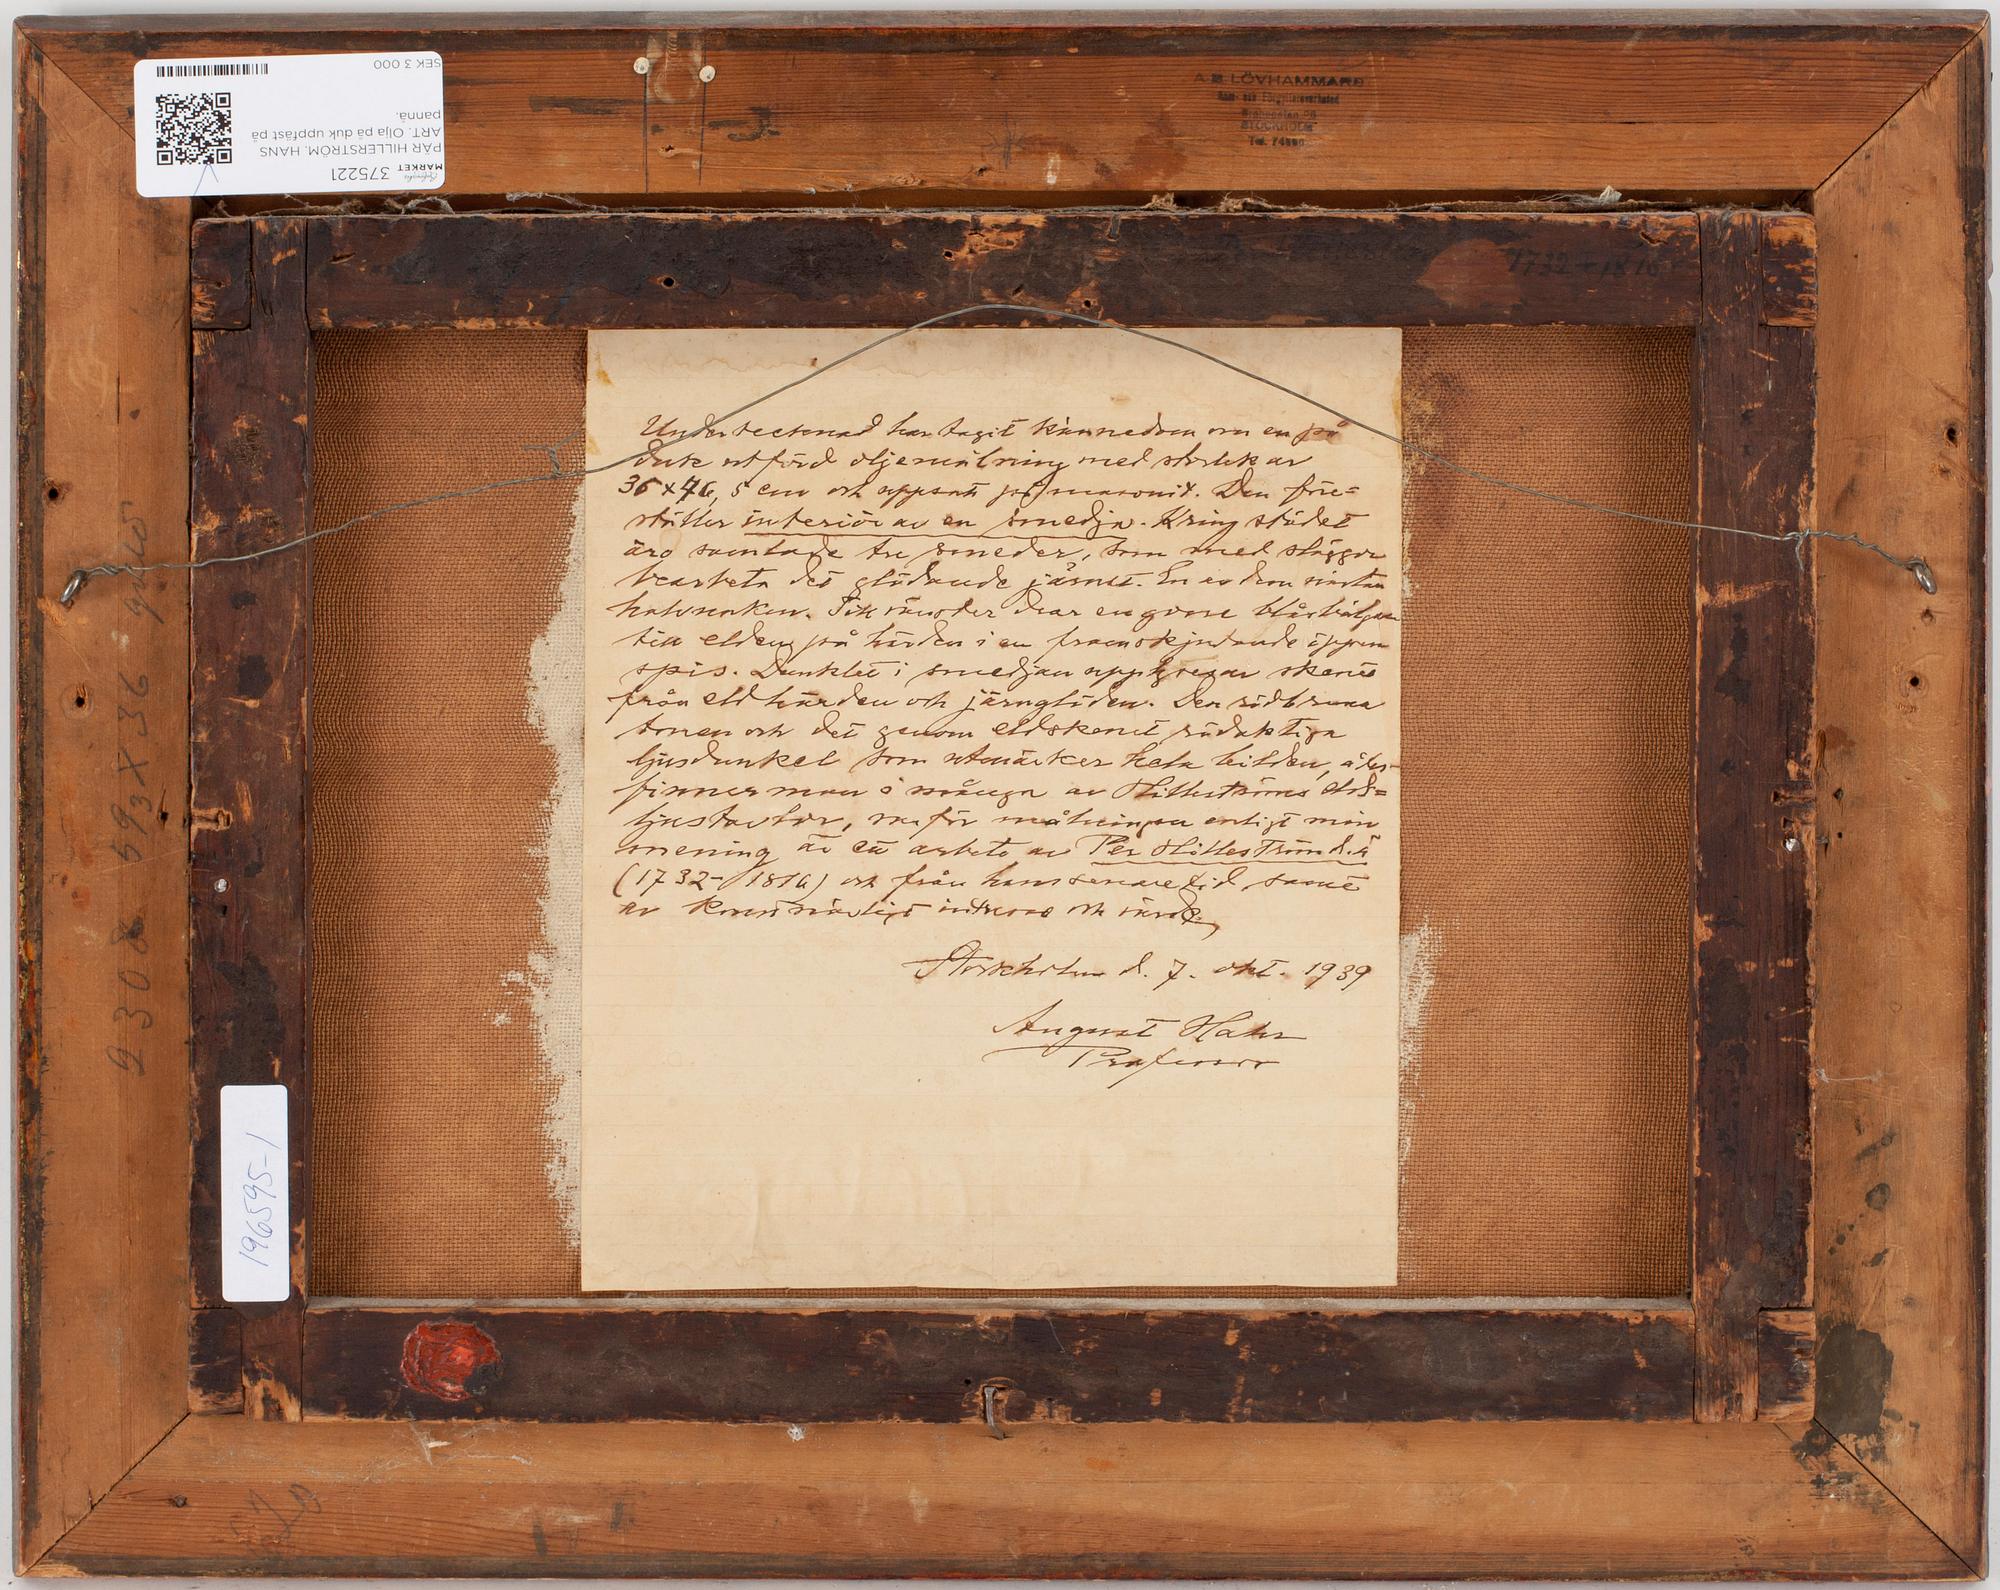 SEK 3 000
375221
MARKET
PÄR HILLERSTRÖM, HANS
ART. Olja på duk uppfäst på
pannå.
A.B. LÖVHAMMARS
STOCKHOLM
Tel.
1732 + 1816
Undertecknad har tagit kännedom om en på
duk utförd oljemålning med storlek av
36 x 46,5 cm och uppsatt på masonit. Den före=
ställer interiör av en smedja. Kring städet
äro samlade tre smeder, som med släggor
bearbeta det glödande järnet. En av dem nästan
halvnaken. Till vänster drar en gosse blåsbälgen
till elden på härden i en framskjutande öppen
spis. Dunklet i smedjan upplyses av skenet
från eldhärden och järnglöden. Den rödbruna
tonen och det genom eldskenet rödaktiga
ljusdunkel som utmärker hela bilden, åter-
finner man i många av Hilleströms elds=
ljustavlor, varför målningen enligt min
mening är ett arbete av Per Hilleström d.ä
(1732-1816) och från hans senare tid samt
av konstnärligt intresse och värde.
Stockholm d. 7. okt. 1939
August Hahr
Professor
2308 593 X 36
196595-1